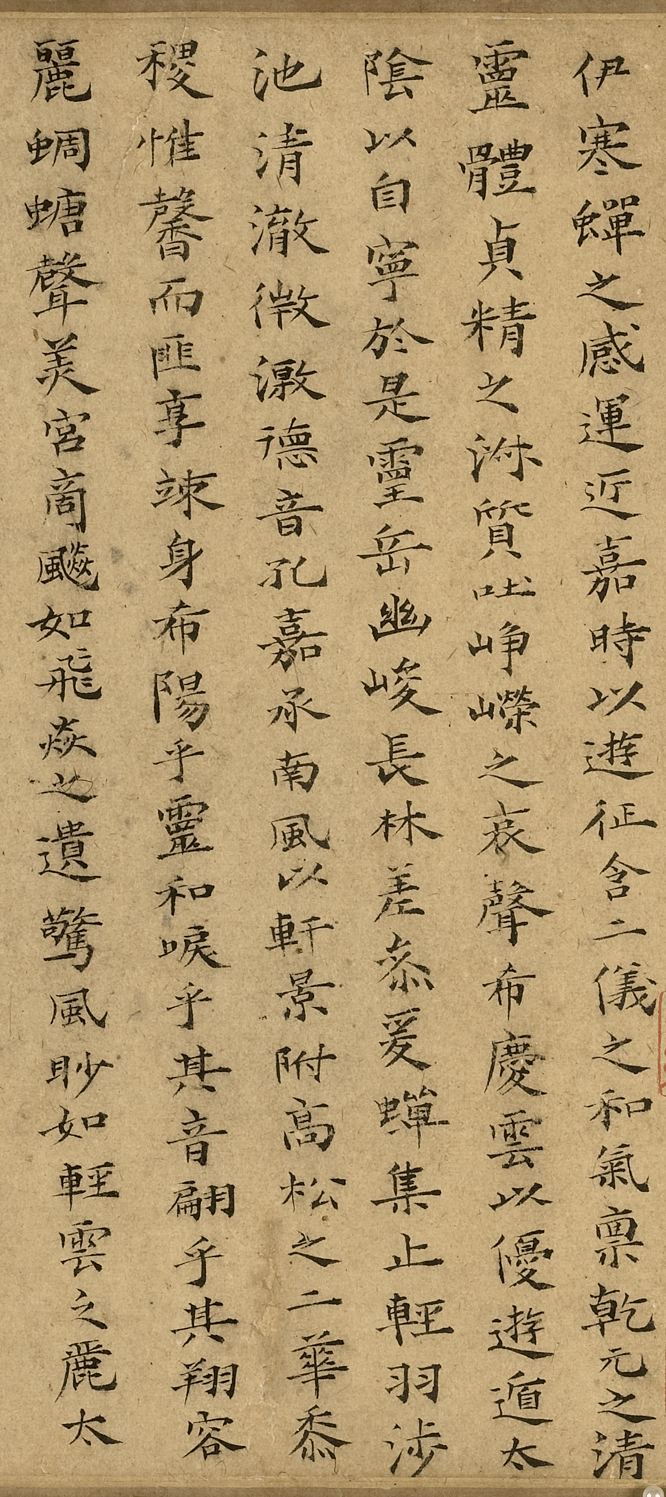 伊寒蟬之感運近嘉時以遊征含二儀之和氣禀乾元之清
靈體貞精之淋質吐崢嶸之哀聲希慶雲以優遊遁太
陰以自寧於是靈岳幽峻長林差叅爰蟬集止輕羽涉
池清澈微激德音孔嘉承南風以軒景附高松之二華黍
稷惟馨而匪享竦身希陽乎靈和唳乎其音翩乎其翔容
麗蜩螗聲美宮商飊如飛焱之遺驚風眇如輕雲之麗太